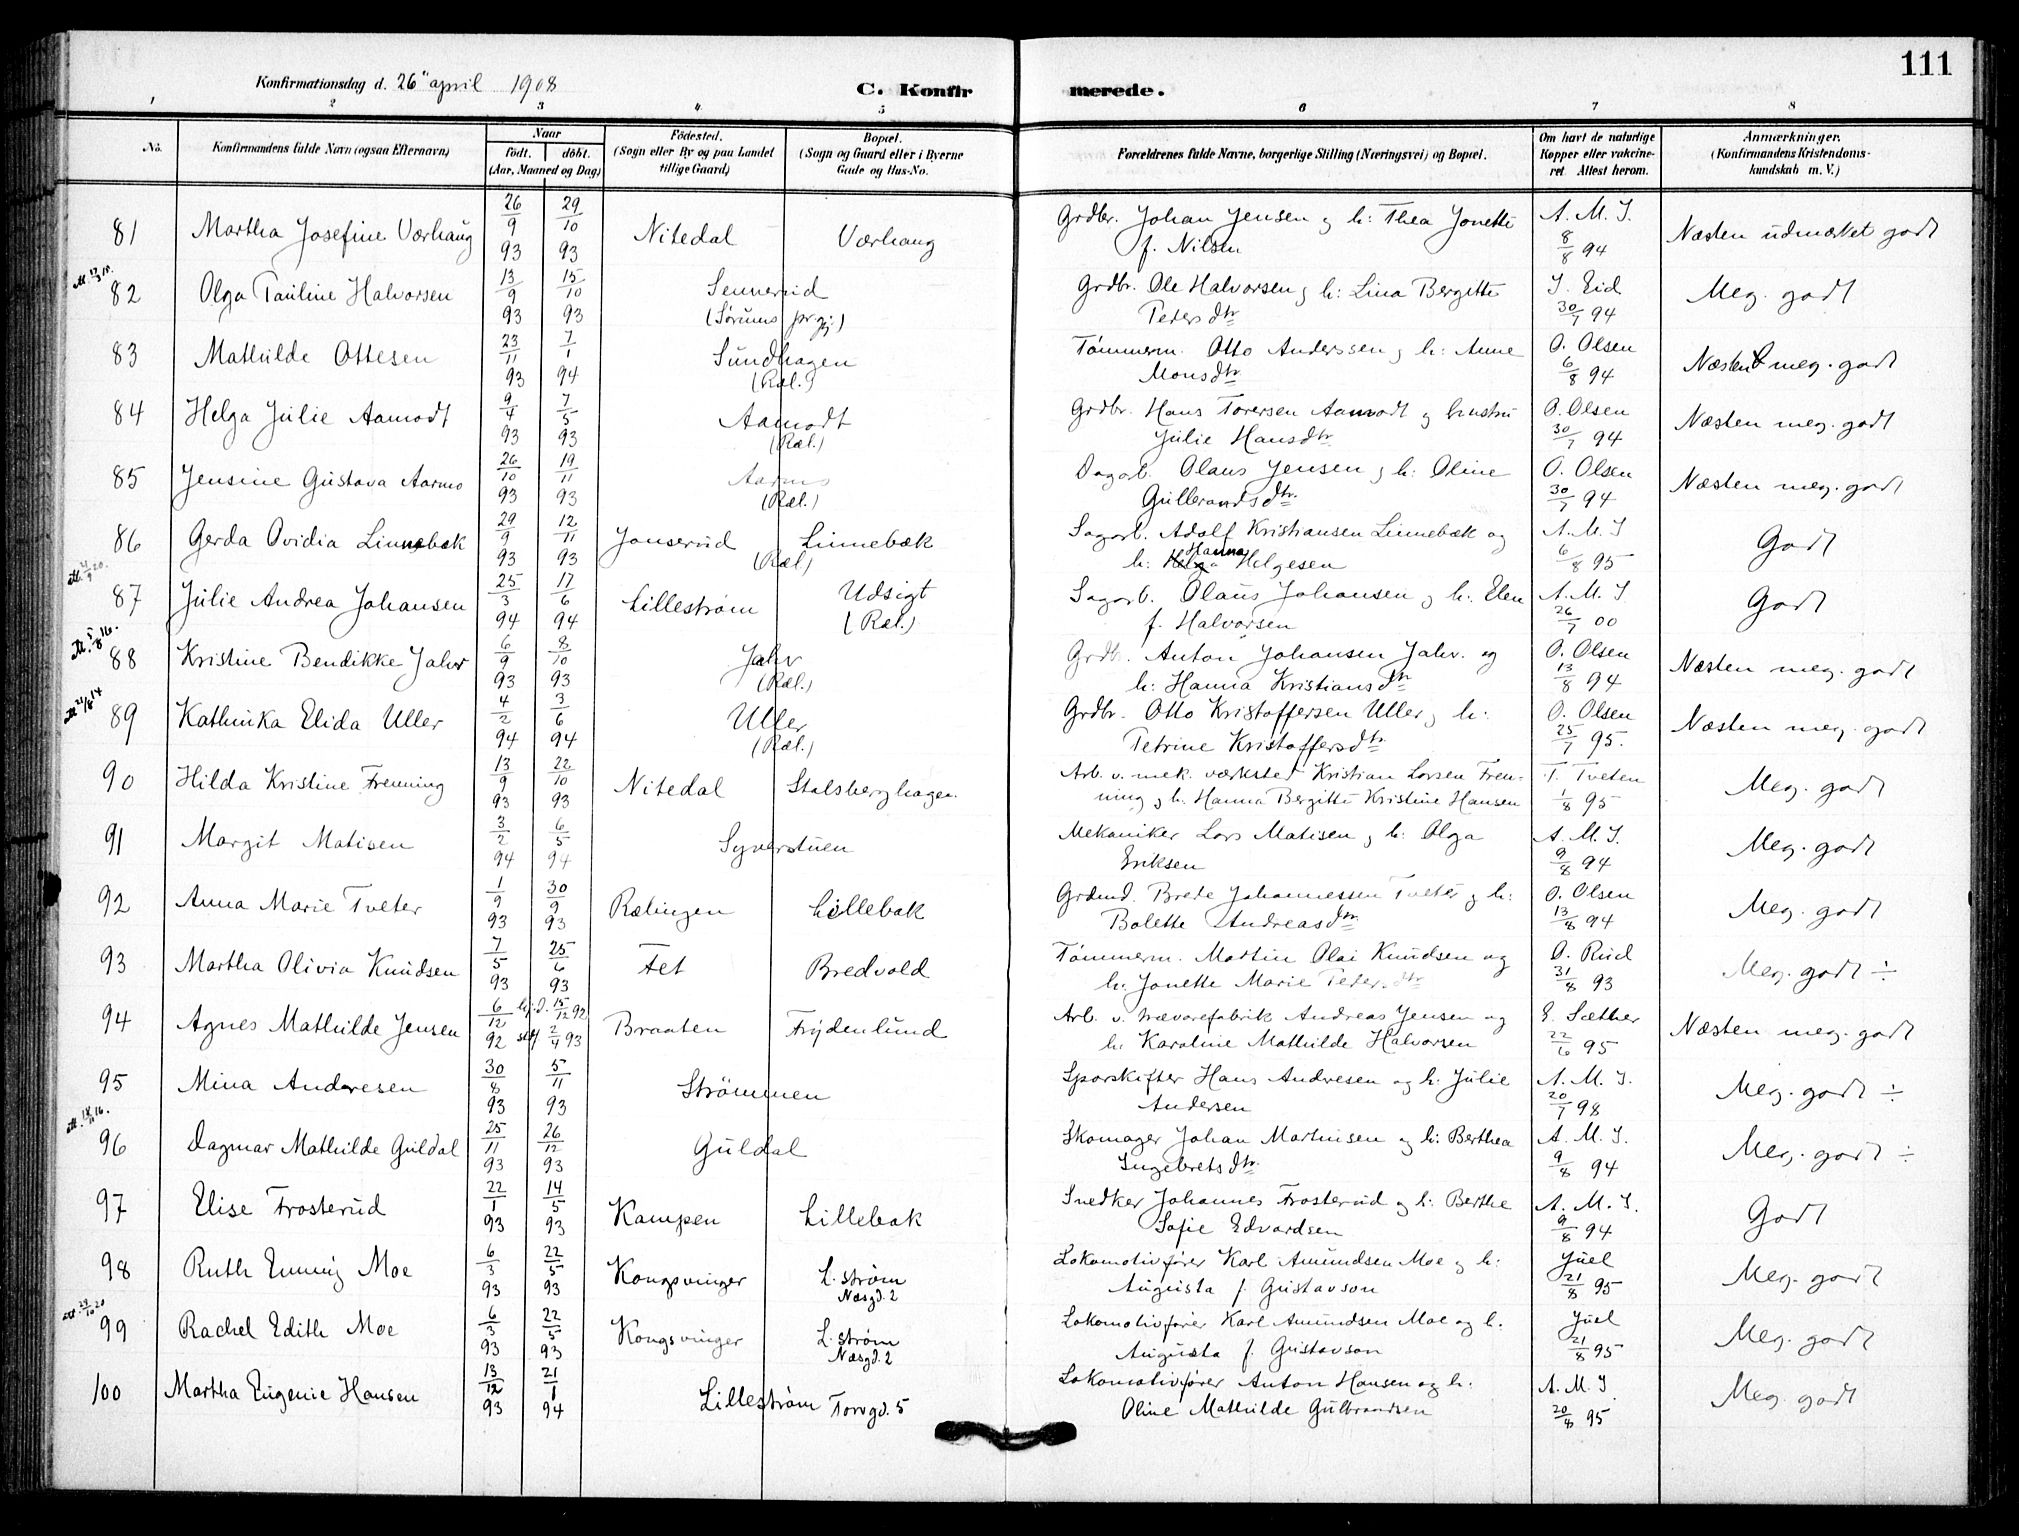 111
Konfirmationsdag d. 26" april 1908
C. Konfirmerede.
1 2 3 4 5 6 7 8
No. Konfirmandens fulde Navn (ogsaa Efternavn) Naar født. døbt. (Aar, Maaned og Dag) Fødested. (Sogn eller By og paa Landet tillige Gaard) Bopæl. (Sogn og Gaard eller i Byerne Gade og Hus-No. Forældrenes fulde Navne, borgerlige Stilling (Næringsvei) og Bopæl. Om havt de naturlige Kopper eller vakcineret. Attest herom. Anmærkninger. (Konfirmandens Kristendomskundskab m. V.)
81 Martha Josefine Værhaug 26/9 93 29/10 93 Nitedal Værhaug Grdbr. Johan Jensen og h: Thea Jonette f. Nilsen A. M. J. 8/8 94 Næsten udmærket godt
82 Olga Pauline Halvorsen 13/9 93 15/10 93 Sennerud (Sørums prgj.) Grdbr. Ole Halvorsen og h: Lina Bergitte Pedersdtr J. Eid 30/7 94 Meg. godt
83 Mathilde Ottesen 23/11 93 7/1 94 Sundhagen (Ræl.) Tømmerm. Otto Anderssen og h: Anne Monsdtr O. Olsen 6/8 94 Næsten meg. godt
84 Helga Julie Aamodt 9/4 93 7/5 93 Aamodt (Ræl.) Grdbr. Hans Torersen Aamodt og hustru Julie Hansdtr O. Olsen 30/7 94 Næsten meg. godt
85 Jensine Gustava Aarnes 26/10 93 19/11 93 (Ræl.) Dagarb. Olaus Jensen og h: Oline Gulbrandsdtr. O. Olsen 30/7 94 Næsten meg. godt
86 Gerda Ovidia Linnebæk 29/9 93 12/11 93 Jonserud Linnebæk (Ræl.) Sagarb. Adolf Kristiansen Linnebæk og h: Hanna Helgesen A. M. J 6/8 95 Godt
87 Julie Andrea Johansen 25/3 94 17/6 94 Lillestrøm Udsigt (Ræl.) Sagarb. Olaus Johansen og h. Elen f. Halvorsen A. M. J. 26/7 00 Godt
88 Kristine Bendikke Jahr 6/9 93 8/10 93 Jahr (Ræl.) Grdb. Anton Johansen Jahr. og h: Hanna Kristiansdtr O. Olsen 13/8 94 Næsten meg. godt
89 Kathinka Elida Uller 4/2 94 3/6 94 Uller (Ræl.) Grdbr. Otto Kristoffersen Uller og h: Petrine Kristoffersdtr O. Olsen 25/7 95. Næsten meg. godt
90 Hilda Kristine Frenning 13/9 93 22/10 93 Nitedal Stalsberghagen. Arb. v. mek. værksted Kristian Larsen Frenning og h. Hanna Bergitte Kristine Hansen T. Tveten 1/8 95 Meg. godt
91 Margit Matisen 3/2 94 6/5 94 Syverstuen Mekaniker Lars Matisen og h: Olga Eriksen A. M. J. 9/8 94 Meg. godt
92 Anna Marie Tveter 1/9 93 30/9 93 Rælingen Lillebæk Grdmd. Brede Johannessen Tveter og h: Bolette Andreasdtr O. Olsen 13/8 94 Meg. godt
93 Martha Olivia Knudsen 7/5 93 25/6 93 Fet Bredvold Tømmerm. Martin Olai Knudsen og h. Jonette Marie Peders.dtr O. Ruud 31/8 93 Meg. godt ÷
94 Agnes Mathilde Jensen 6/12 92 hj.d. 15/12 92 2/4 93 Braaten Frydenlund Arb. v. trævarefabrik Andreas Jensen og h. Karoline Mathilde Halvorsen E. Sæther 22/6 95 Næsten meg. godt
95 Mina Andresen 30/8 93 5/11 93 Strømmen Sporskifter Hans Andresen og h: Julie Andersen A. M. J. 20/7 98 Meg. godt ÷
96 Dagmar Mathilde Guldal 25/11 93 26/12 93 Guldal Skomager Johan Martinsen og h: Berthea Ingebretsdtr. A. M. J. 9/8 94 Meg. godt ÷
97 Elise Frosterud 22/1 93 14/5 93 Kampen Lillebæk Snedker Johannes Frosterud og h: Berthe Sofie Edvardsen A. M. J. 9/8 94 Godt
98 Ruth Emmy Moe 6/3 93 22/5 93 Kongsvinger L.strøm Næsgd. 2 Lokomotivfører Karl Amundsen Moe og h: Augusta f. Gustavson Juel 21/8 95 Meg. godt
99 Rachel Edith Moe 6/3 93 22/5 93 Kongsvinger L.strøm Næsgd. 2 Lokomotivfører Karl Amundsen Moe og h. Augusta f. Gustavson Juel 21/8 95 Meg. godt
100 Martha Eugenie Hansen 13/12 93 21/1 94 Lillestrøm Torvgd. 5 Lokomotivfører Anton Hansen og h. Oline Mathilde Gulbrandsen A. M. J 20/8 95 Meg. godt